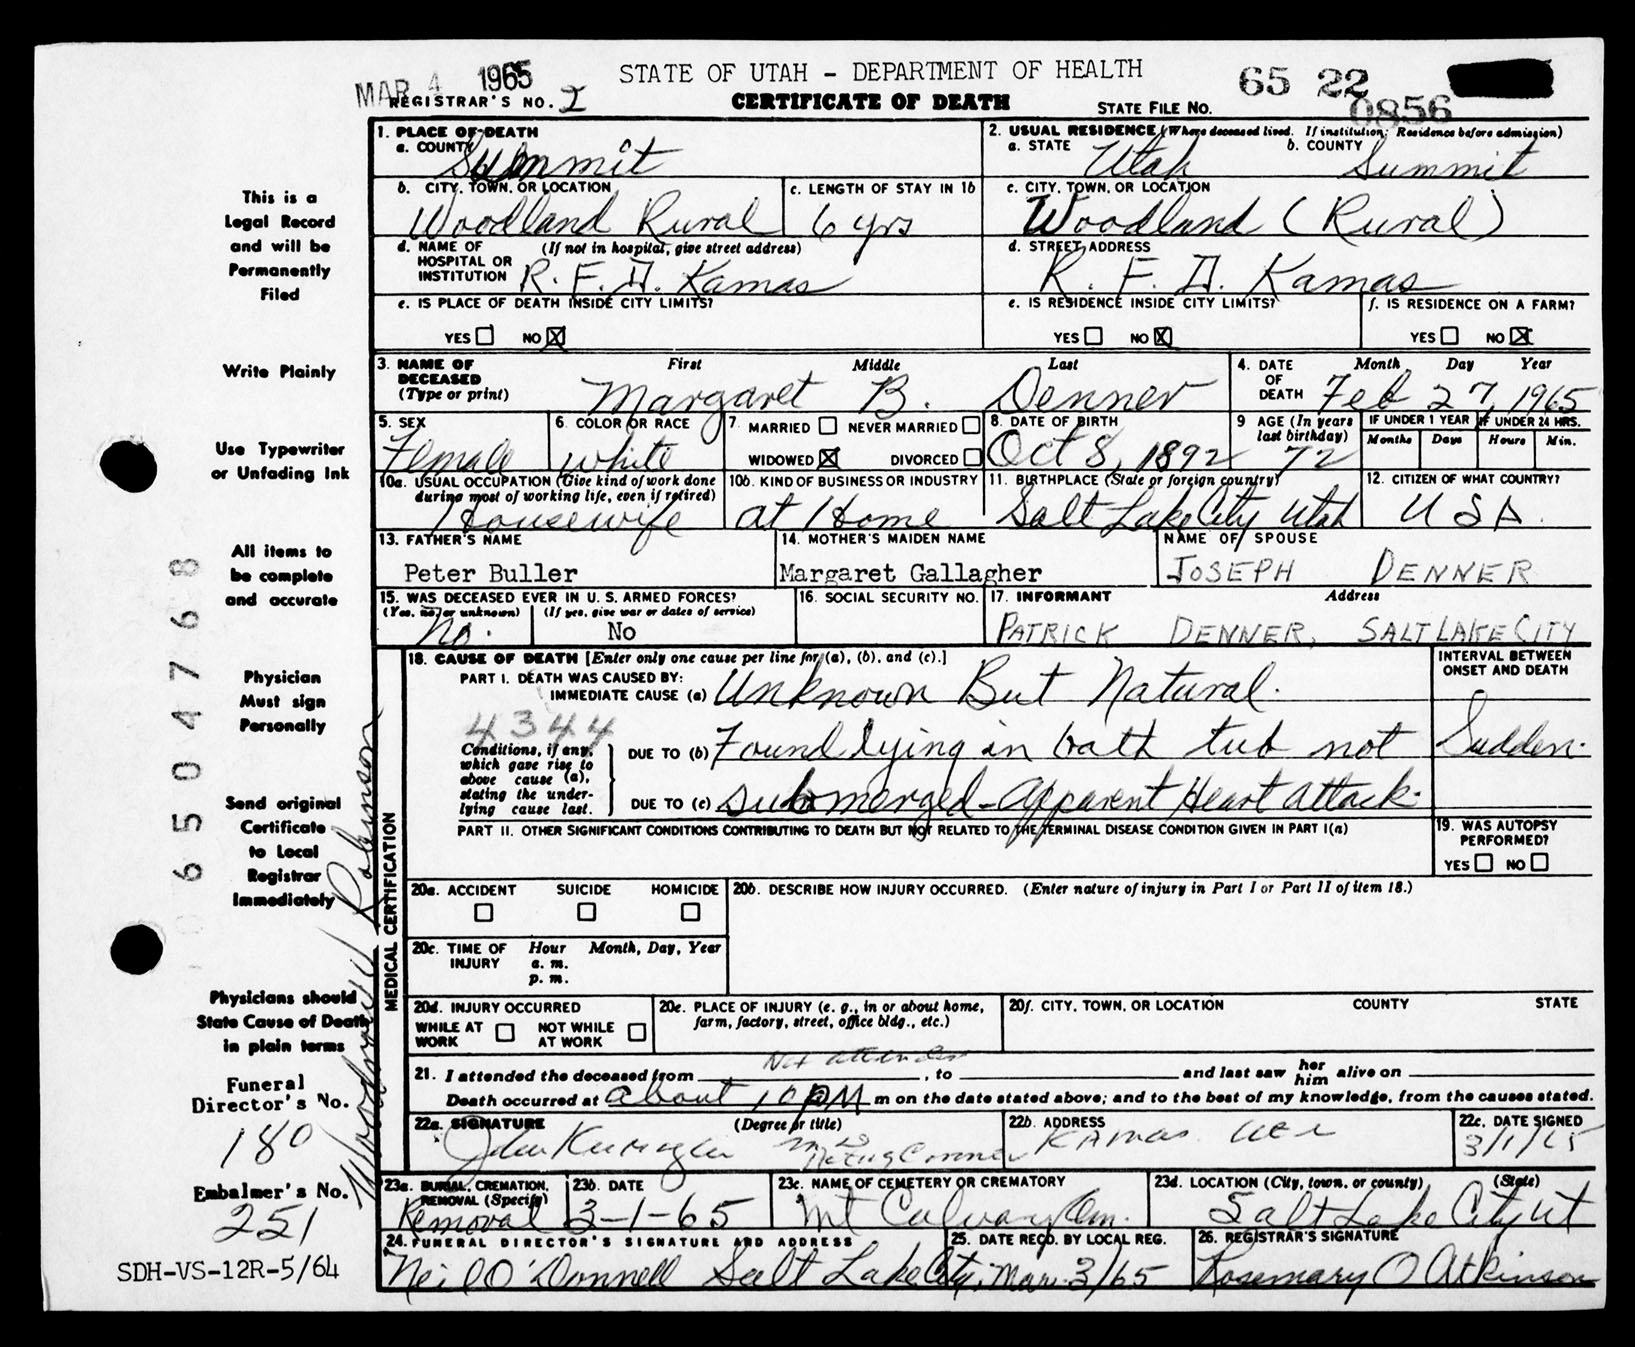 MAR 4 1965
STATE OF UTAH - DEPARTMENT OF HEALTH
65 22
0856
REGISTRAR'S NO. I
CERTIFICATE OF DEATH
STATE FILE NO.
1. PLACE OF DEATH
a. COUNTY Summit
2. USUAL RESIDENCE (Where deceased lived. If institution; Residence before admission)
a. STATE Utah b. COUNTY Summit
b. CITY, TOWN, OR LOCATION Woodland Rural
c. LENGTH OF STAY IN 1b 6 yrs
c. CITY, TOWN, OR LOCATION Woodland (Rural)
d. NAME OF HOSPITAL OR INSTITUTION (If not in hospital, give street address) R. F. D. Kamas
d. STREET ADDRESS R. F. D. Kamas
e. IS PLACE OF DEATH INSIDE CITY LIMITS?
YES NO X
e. IS RESIDENCE INSIDE CITY LIMITS?
YES NO X
f. IS RESIDENCE ON A FARM?
YES NO X
3. NAME OF DECEASED (Type or print) First Middle Last
Margaret B. Denner
4. DATE OF DEATH Month Day Year
Feb 27, 1965
5. SEX Female
6. COLOR OR RACE White
7. MARRIED NEVER MARRIED
WIDOWED X DIVORCED
8. DATE OF BIRTH Oct 8, 1892
9 AGE (In years last birthday) 72
IF UNDER 1 YEAR Months Days
IF UNDER 24 HRS. Hours Min.
10a. USUAL OCCUPATION (Give kind of work done during most of working life, even if retired)
Housewife
10b. KIND OF BUSINESS OR INDUSTRY
at Home
11. BIRTHPLACE (State or foreign country)
Salt Lake City Utah
12. CITIZEN OF WHAT COUNTRY?
U S A.
13. FATHER'S NAME
Peter Buller
14. MOTHER'S MAIDEN NAME
Margaret Gallagher
NAME OF SPOUSE
JOSEPH DENNER
15. WAS DECEASED EVER IN U. S. ARMED FORCES?
(Yes, no, or unknown) (If yes, give war or dates of service)
No. No
16. SOCIAL SECURITY NO.
17. INFORMANT Address
PATRICK DENNER, SALT LAKE CITY
MEDICAL CERTIFICATION
18. CAUSE OF DEATH [Enter only one cause per line for (a), (b), and (c).]
INTERVAL BETWEEN ONSET AND DEATH
PART I. DEATH WAS CAUSED BY:
IMMEDIATE CAUSE (a) Unknown But Natural.
4344
Conditions, if any, which gave rise to above cause (a), stating the underlying cause last.
DUE TO (b) Found lying in bath tub not
Sudden.
DUE TO (c) submerged - Apparent Heart attack.
PART II. OTHER SIGNIFICANT CONDITIONS CONTRIBUTING TO DEATH BUT NOT RELATED TO THE TERMINAL DISEASE CONDITION GIVEN IN PART I(a)
19. WAS AUTOPSY PERFORMED?
YES NO
20a. ACCIDENT SUICIDE HOMICIDE
20b. DESCRIBE HOW INJURY OCCURRED. (Enter nature of injury in Part I or Part II of item 18.)
20c. TIME OF INJURY Hour Month, Day, Year
a. m.
p. m.
20d. INJURY OCCURRED
WHILE AT WORK NOT WHILE AT WORK
20e. PLACE OF INJURY (e. g., in or about home, farm, factory, street, office bldg., etc.)
20f. CITY, TOWN, OR LOCATION COUNTY STATE
Not attended
21. I attended the deceased from , to and last saw her him alive on
Death occurred at about 10 PM m on the date stated above; and to the best of my knowledge, from the causes stated.
22a. SIGNATURE (Degree or title)
22b. ADDRESS
Kamas
22c. DATE SIGNED
3/1/65
23a. BURIAL, CREMATION, REMOVAL (Specify)
Removal
23b. DATE
3-1-65
23c. NAME OF CEMETERY OR CREMATORY
Mt Calvary Cem.
23d. LOCATION (City, town, or county) (State)
Salt Lake City Ut
24. FUNERAL DIRECTOR'S SIGNATURE AND ADDRESS
Neil O'Donnell Salt Lake City,
25. DATE RECD. BY LOCAL REG.
Mar. 3/65
26. REGISTRAR'S SIGNATURE
Rosemary O Atkinson
This is a
Legal Record
and will be
Permanently
Filed
Write Plainly
Use Typewriter
or Unfading Ink
All items to
be complete
and accurate
Physician
Must sign
Personally
Send original
Certificate
to Local
Registrar
Immediately
Physicians should
State Cause of Death
in plain terms
Funeral
Director's No.
180
Embalmer's No.
251
SDH-VS-12R-5/64
6504768
Robinson